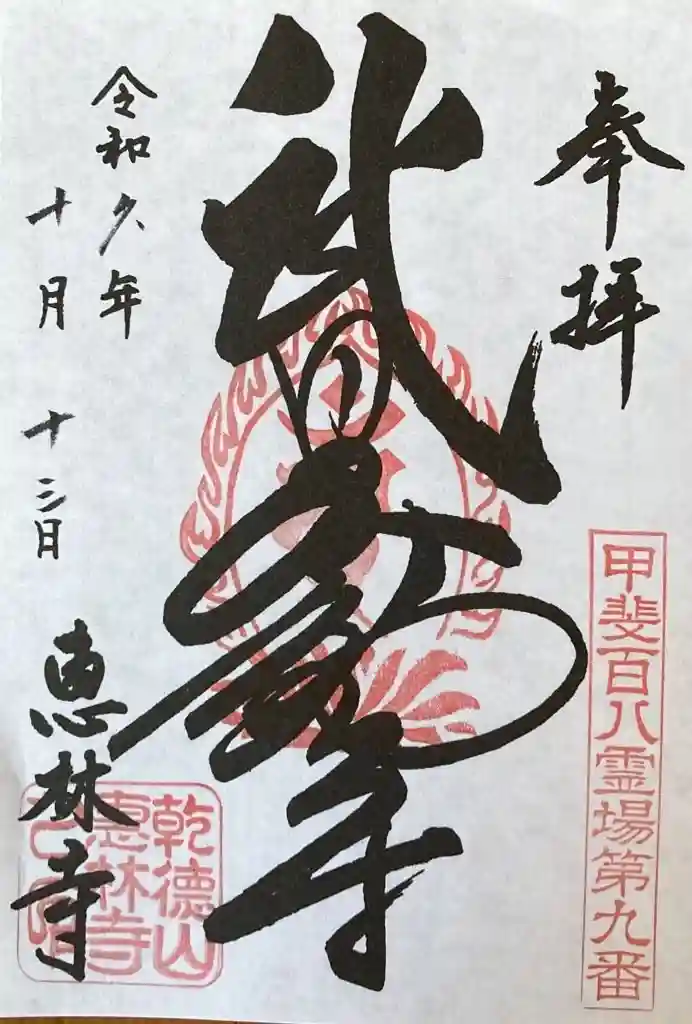 奉拝
甲斐百八霊場第九番
武田不動尊
令和 年
十月 十三日
恵林寺
乾徳山
恵林寺